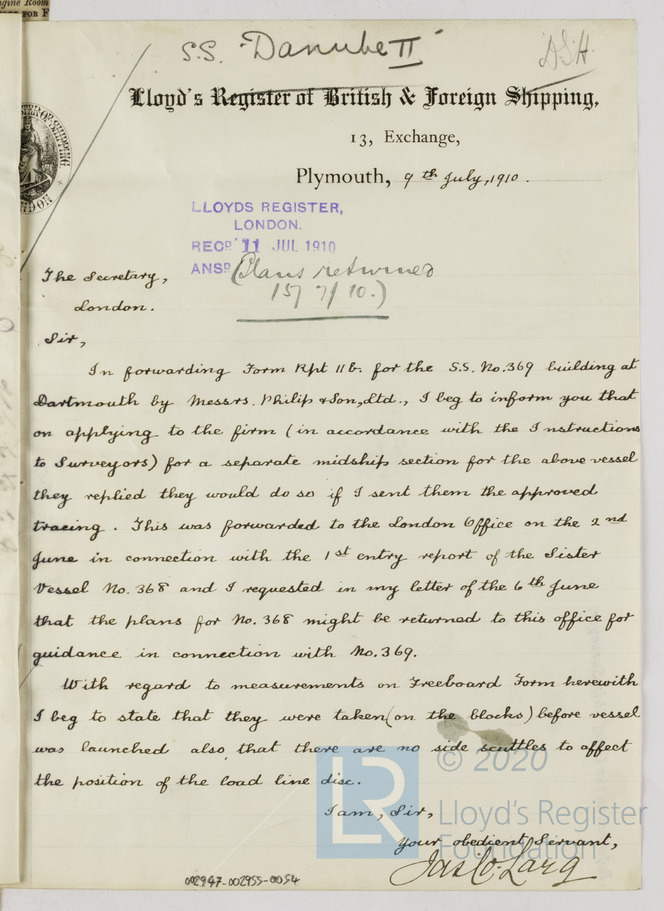 gine Room
FOR F
S.S. "Danube II"
Lloyd's Register of British & Foreign Shipping,
13, Exchange,
Plymouth, 9th July, 1910.
LLOYDS REGISTER,
LONDON.
RECD 11 JUL 1910
ANSD (Plans returned
15/7/10.)
The Secretary,
London.
Sir,
In forwarding Form Rpt 11b. for the S.S. No. 369 building at
Dartmouth by Messrs. Philip & Son, Ltd., I beg to inform you that
on applying to the firm (in accordance with the Instructions
to Surveyors) for a separate midship section for the above vessel
they replied they would do so if I sent them the approved
tracing. This was forwarded to the London Office on the 2nd
June in connection with the 1st entry report of the Sister
Vessel No. 368 and I requested in my letter of the 6th June
that the plans for No. 368 might be returned to this office for
guidance in connection with No. 369.
With regard to measurements on Freeboard Form herewith
I beg to state that they were taken (on the blocks) before vessel
was launched also that there are no side scuttles to affect
the position of the load line disc.
I am, Sir,
Your obedient Servant,
002947-002955-0054
LR
© 2020
Lloyd's Register
Foundation